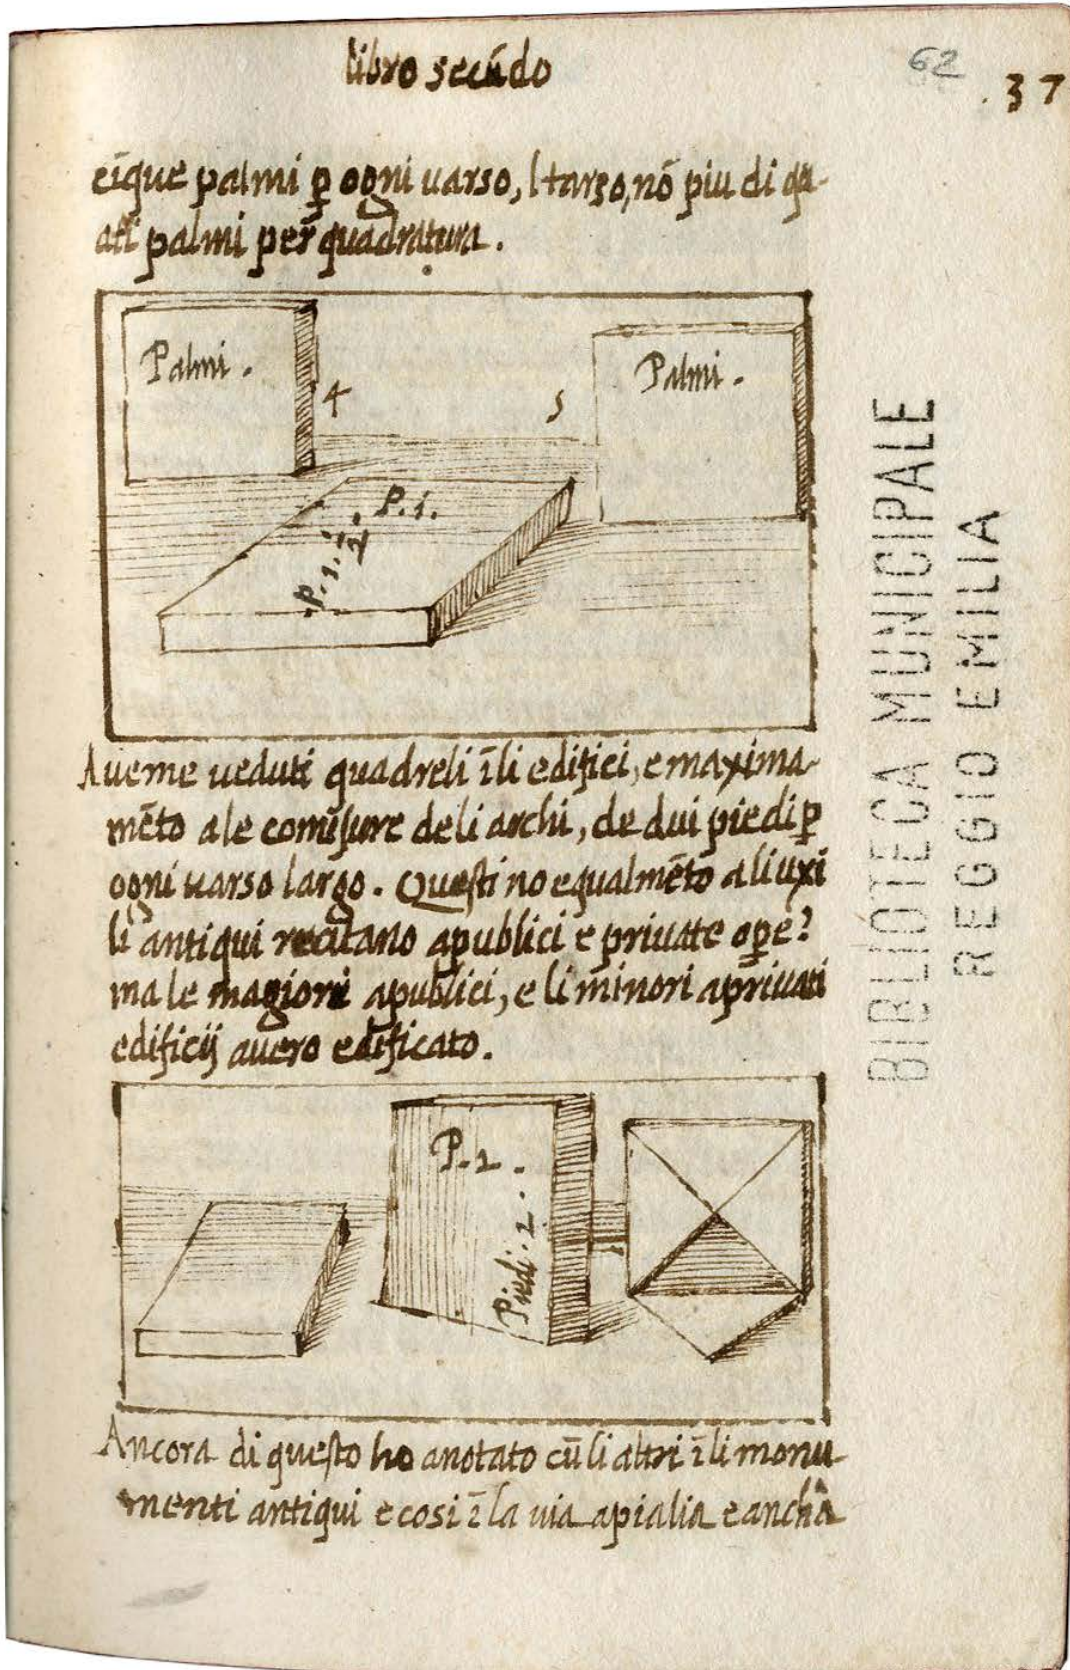 libro secūdo
62
.37
cīque palmi p̲ ogni uarso, l tarso, nō piu di qu-
atr̄ palmi per quadratura.
Palmi.
4
5
Palmi.
P.1.
P.1.½.
Aueme ueduti quadreli īli edifici, e maxima-
mēto ale comisure deli archi, de dui piedi p̲
ogni uarso largo. Questi no equalmēto ali uxi
li antiqui recitano apublici e priuate op̲e?
ma le magiori apublici, e li minori apriuati
edificij auero edificato.
P.2.
Piedi.2.
Ancora di questo ho anotato cū li altri īli monu-
menti antiqui e cosi ī la uia apialia e anchā
BIBLIOTECA MUNICIPALE
REGGIO EMILIA